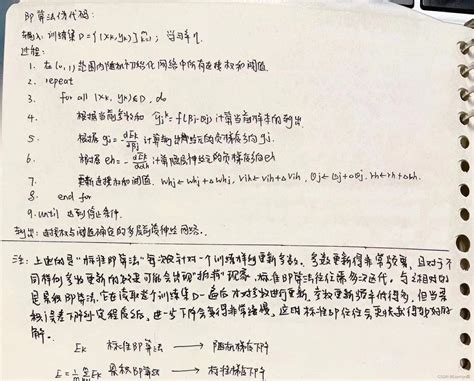 BP算法伪代码:
输入: 训练集D={(xk,yk)}ᵐk=1; 学习率η.
过程:
1. 在(0,1)范围内随机初始化网络中所有连接权和阈值.
2. repeat
3. for all (xk, yk)∈D, do
4. 根据当前参数和 ŷjᵏ=f(βj-θj) 计算当前样本的输出.
5. 根据 gj=-dEk/dβj 计算输出神经元的梯度项gj.
6. 根据 eh=-dEk/dαh 计算隐层神经元的梯度项eh
7. 更新连接权和阈值. whj←whj+Δwhj, vih←vih+Δvih, θj←θj+Δθj, rh←rh+Δrh
8. end for
9. until 达到停止条件.
输出: 连接权与阈值确定的多层前馈神经网络.
注: 上述的是"标准BP算法"每次仅针对一个训练样例更新参数. 参数更新得非常频繁, 且对于不
同样例参数更新的效果可能会出现"抵消"现象. 标准BP算法往往需多次迭代. 与之相对的
是累积BP算法, 它在读取整个训练集D一遍后才对参数进行更新, 参数更新频率低得多, 但当累
积误差下降到一定程度后, 进一步下降会变得非常缓慢, 这时标准BP往往会更快获得较好的
解.
Ek 标准BP算法 → 随机梯度下降
E=1/m ΣEk 累积BP算法 → 标准梯度下降